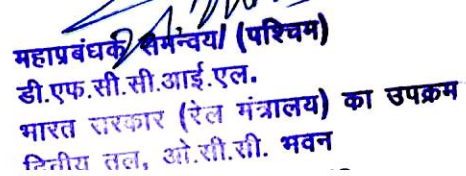 महाप्रबंधक समन्वय/ (पश्चिम)
डी.एफ.सी.सी.आई.एल.
भारत सरकार (रेल मंत्रालय) का उपक्रम
द्वितीय तल, ओ.सी.सी. भवन